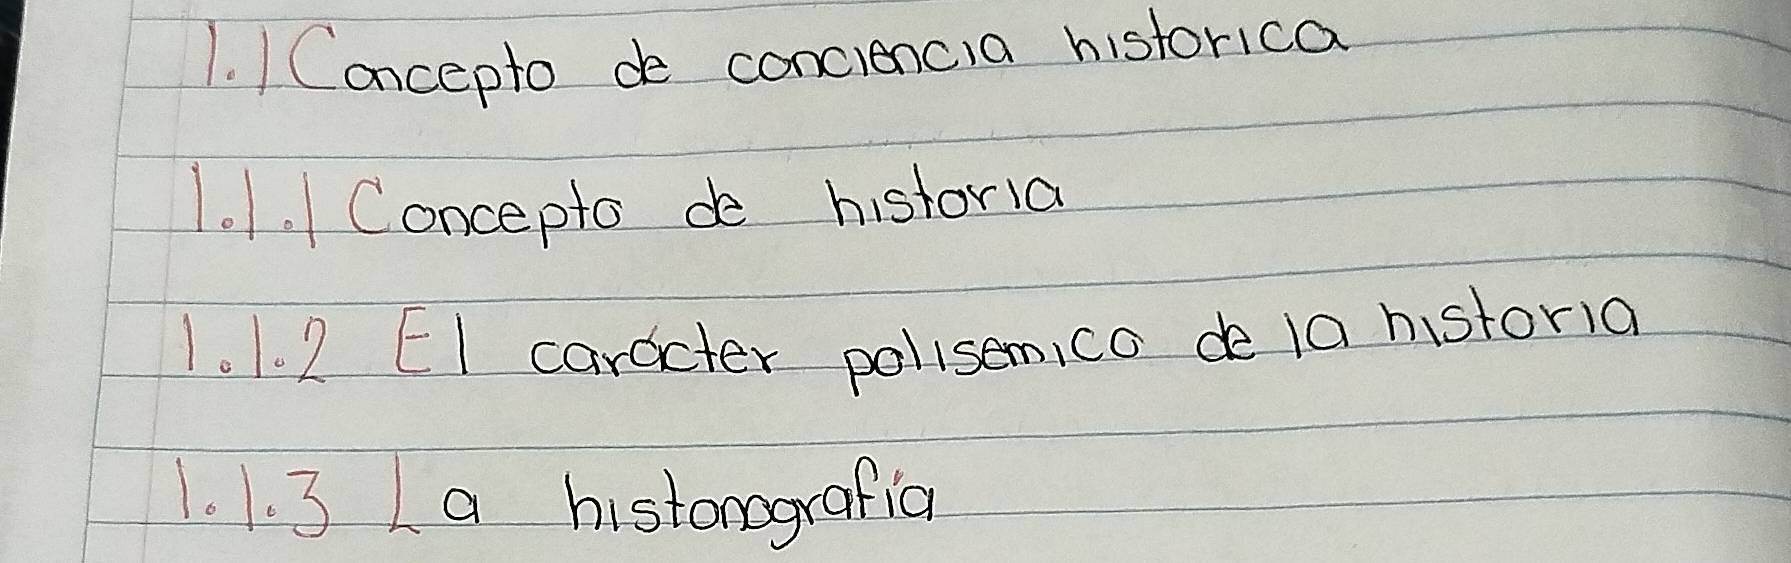 1.1 Concepto de conciencia historica
1.1.1 Concepto de historia
1.1.2 El carácter polisemico de la historia
1.1.3 La historiografía